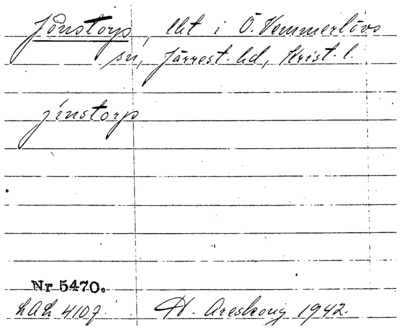 Jönstorp, lht i Ö. Vemmerlövs
sn, Järrest. hd, Krist. l.
jinstorp
Nr 5470.
H. Areskoug 1942.